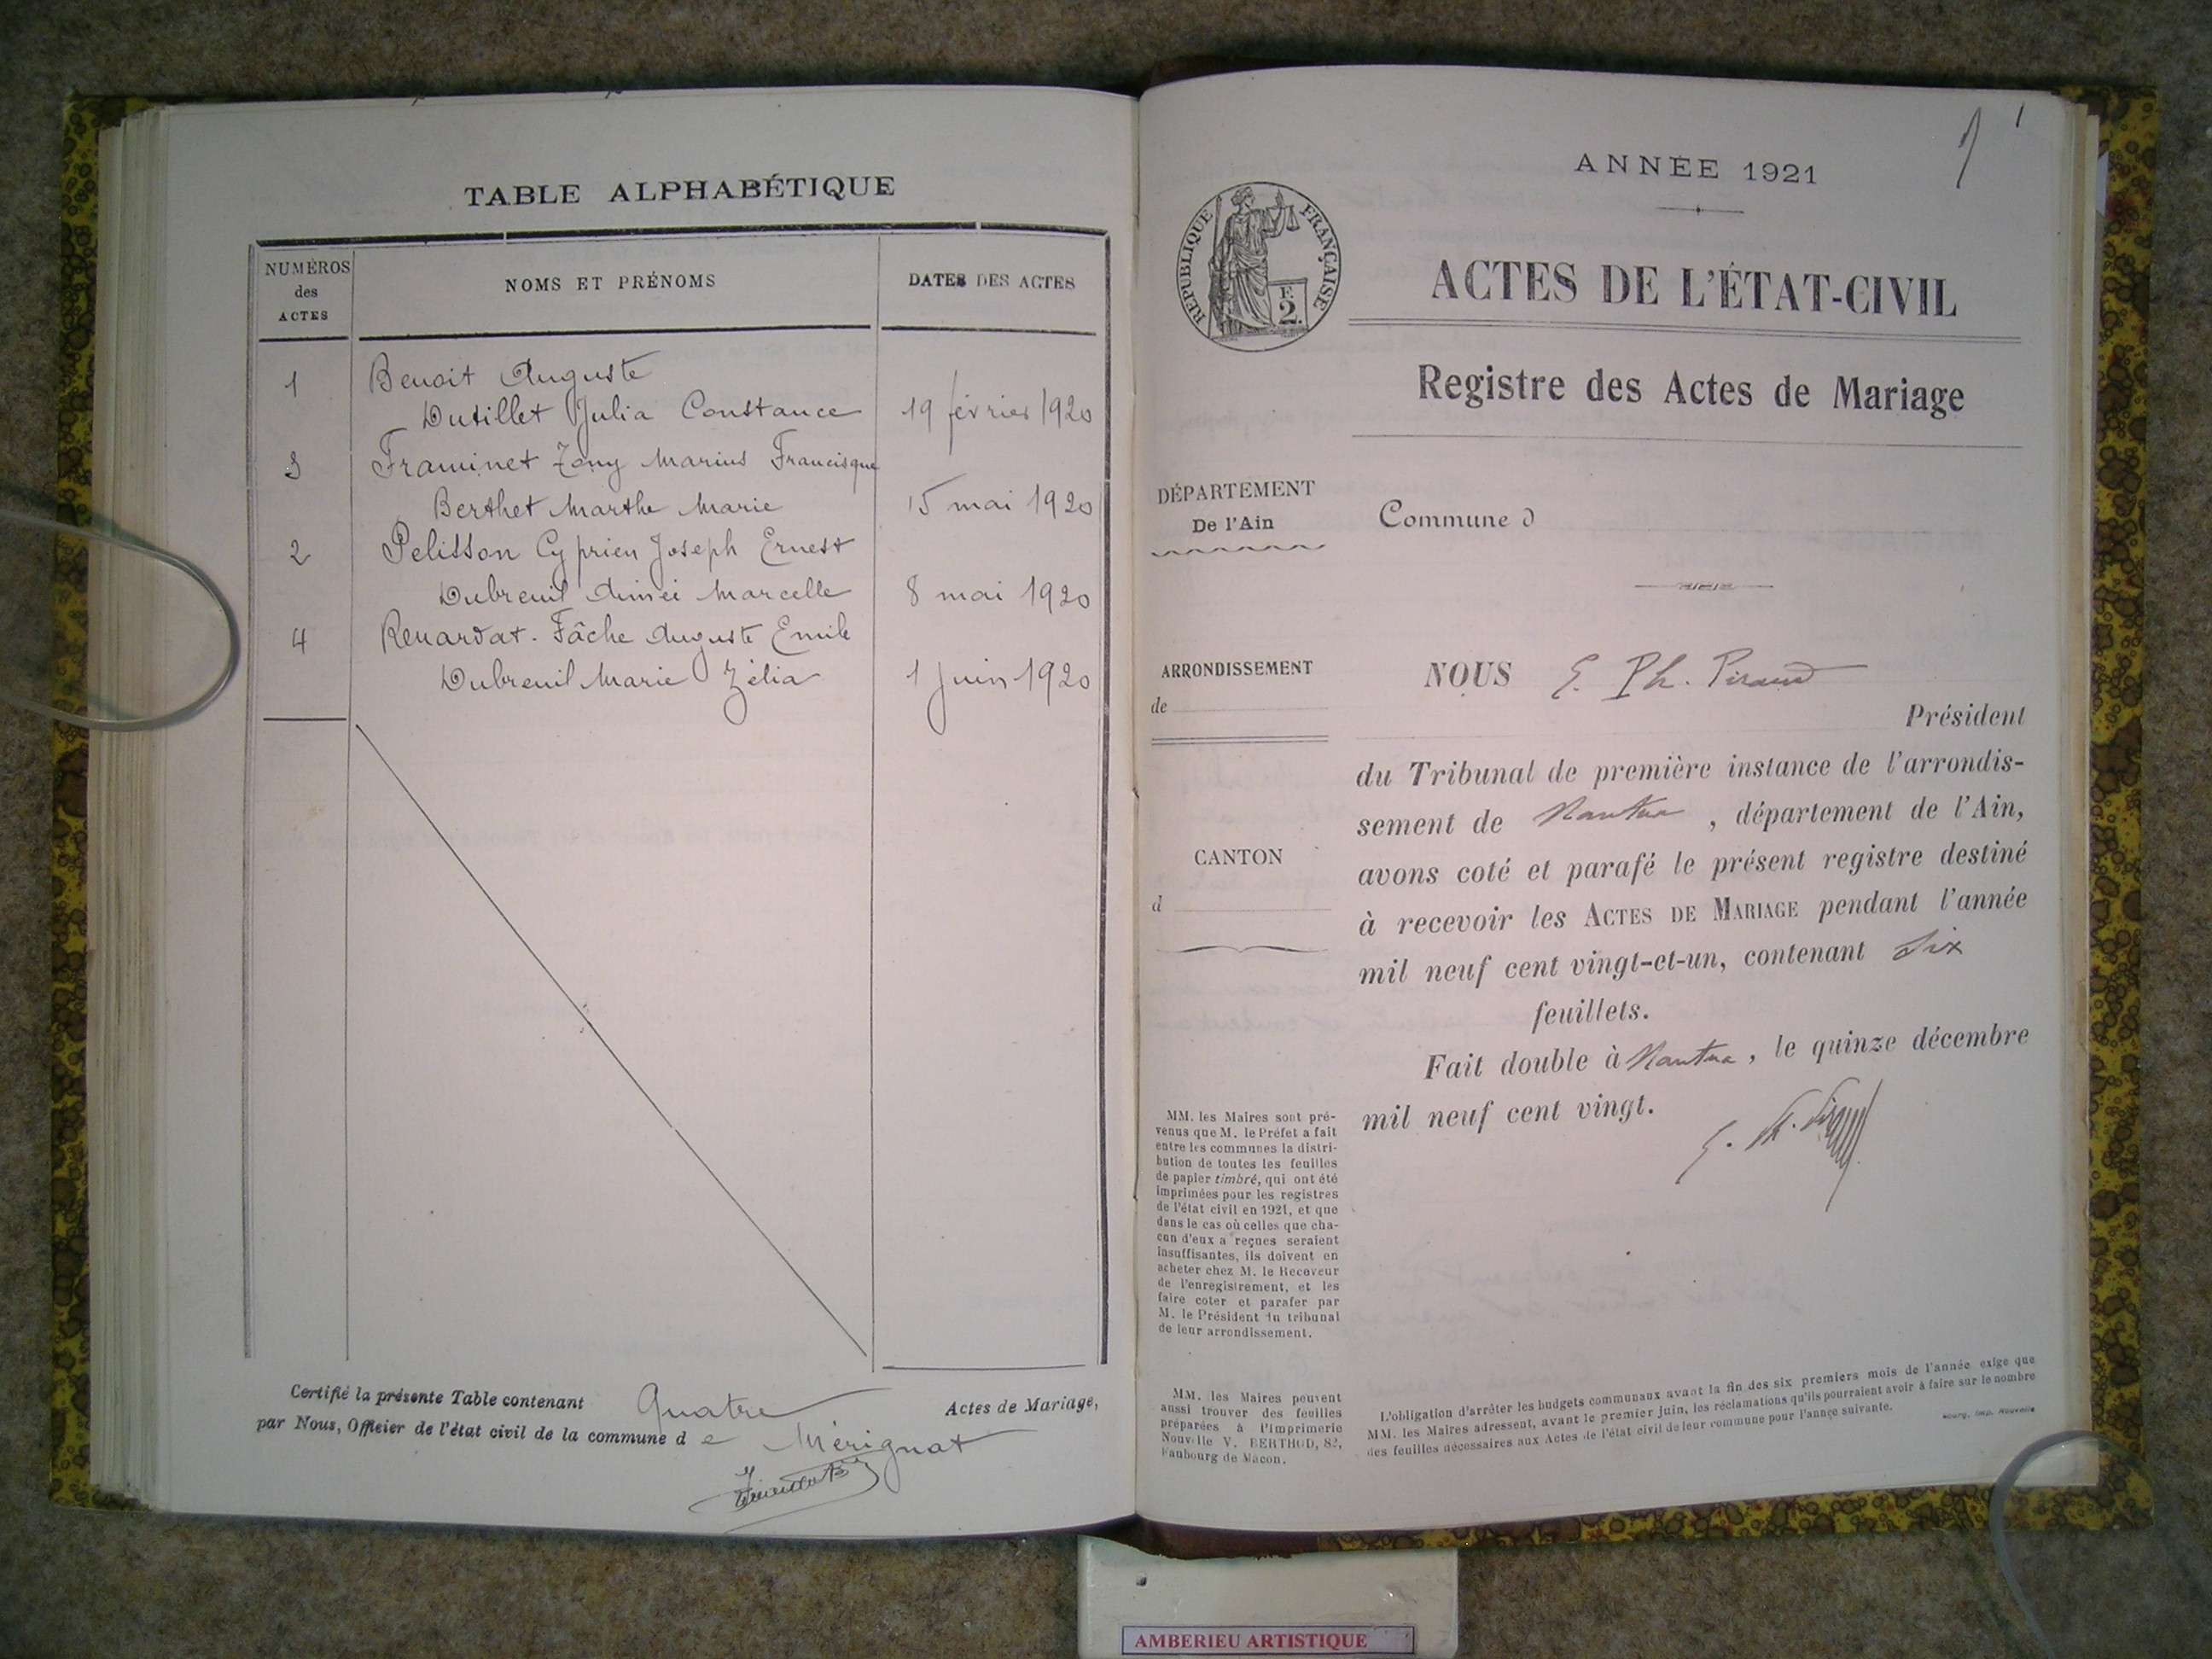 TABLE ALPHABÉTIQUE
NUMÉROS des ACTES
NOMS ET PRÉNOMS
DATES DES ACTES
1 Benoit Auguste
Dutillet Julia Constance 19 février 1920
3 Framinet Zony Marius Francisque
Berthet Marthe Marie 15 mai 1920
2 Pelisson Cyprien Joseph Ernest
Dubreuil Marcelle 8 mai 1920
4 Renardat-Fâche Auguste Emile
Dubreuil Marie Zélia 1 Juin 1920
Certifié la présente Table contenant Quatre Actes de Mariage,
par Nous, Officier de l'état civil de la commune de Mérignat
1
ANNÉE 1921
RÉPUBLIQUE FRANÇAISE
F.
2.
ACTES DE L'ÉTAT-CIVIL
Registre des Actes de Mariage
DÉPARTEMENT
De l'Ain
Commune d
ARRONDISSEMENT
de
CANTON
d
NOUS E. Ph. Piraud
Président
du Tribunal de première instance de l'arrondis-
sement de Nantua, département de l'Ain,
avons coté et parafé le présent registre destiné
à recevoir les ACTES DE MARIAGE pendant l'année
mil neuf cent vingt-et-un, contenant Six
feuillets.
Fait double à Nantua, le quinze décembre
mil neuf cent vingt.
MM. les Maires sont pré-
venus que M. le Préfet a fait
entre les communes la distri-
bution de toutes les feuilles
de papier timbré, qui ont été
imprimées pour les registres
de l'état civil en 1921, et que
dans le cas où celles que cha-
cun d'eux a reçues seraient
insuffisantes, ils doivent en
acheter chez M. le Receveur
de l'enregistrement, et les
faire coter et parafer par
M. le Président du tribunal
de leur arrondissement.
MM. les Maires peuvent
aussi trouver des feuilles
préparées à l'Imprimerie
Nouvelle V. BERTHOD, 82,
Faubourg de Macon.
L'obligation d'arrêter les budgets communaux avant la fin des six premiers mois de l'année exige que
MM. les Maires adressent, avant le premier Juin, les réclamations qu'ils pourraient avoir à faire sur le nombre
des feuilles nécessaires aux Actes de l'état civil de leur commune pour l'année suivante.
Bourg, Imp. Nouvelle
AMBERIEU ARTISTIQUE